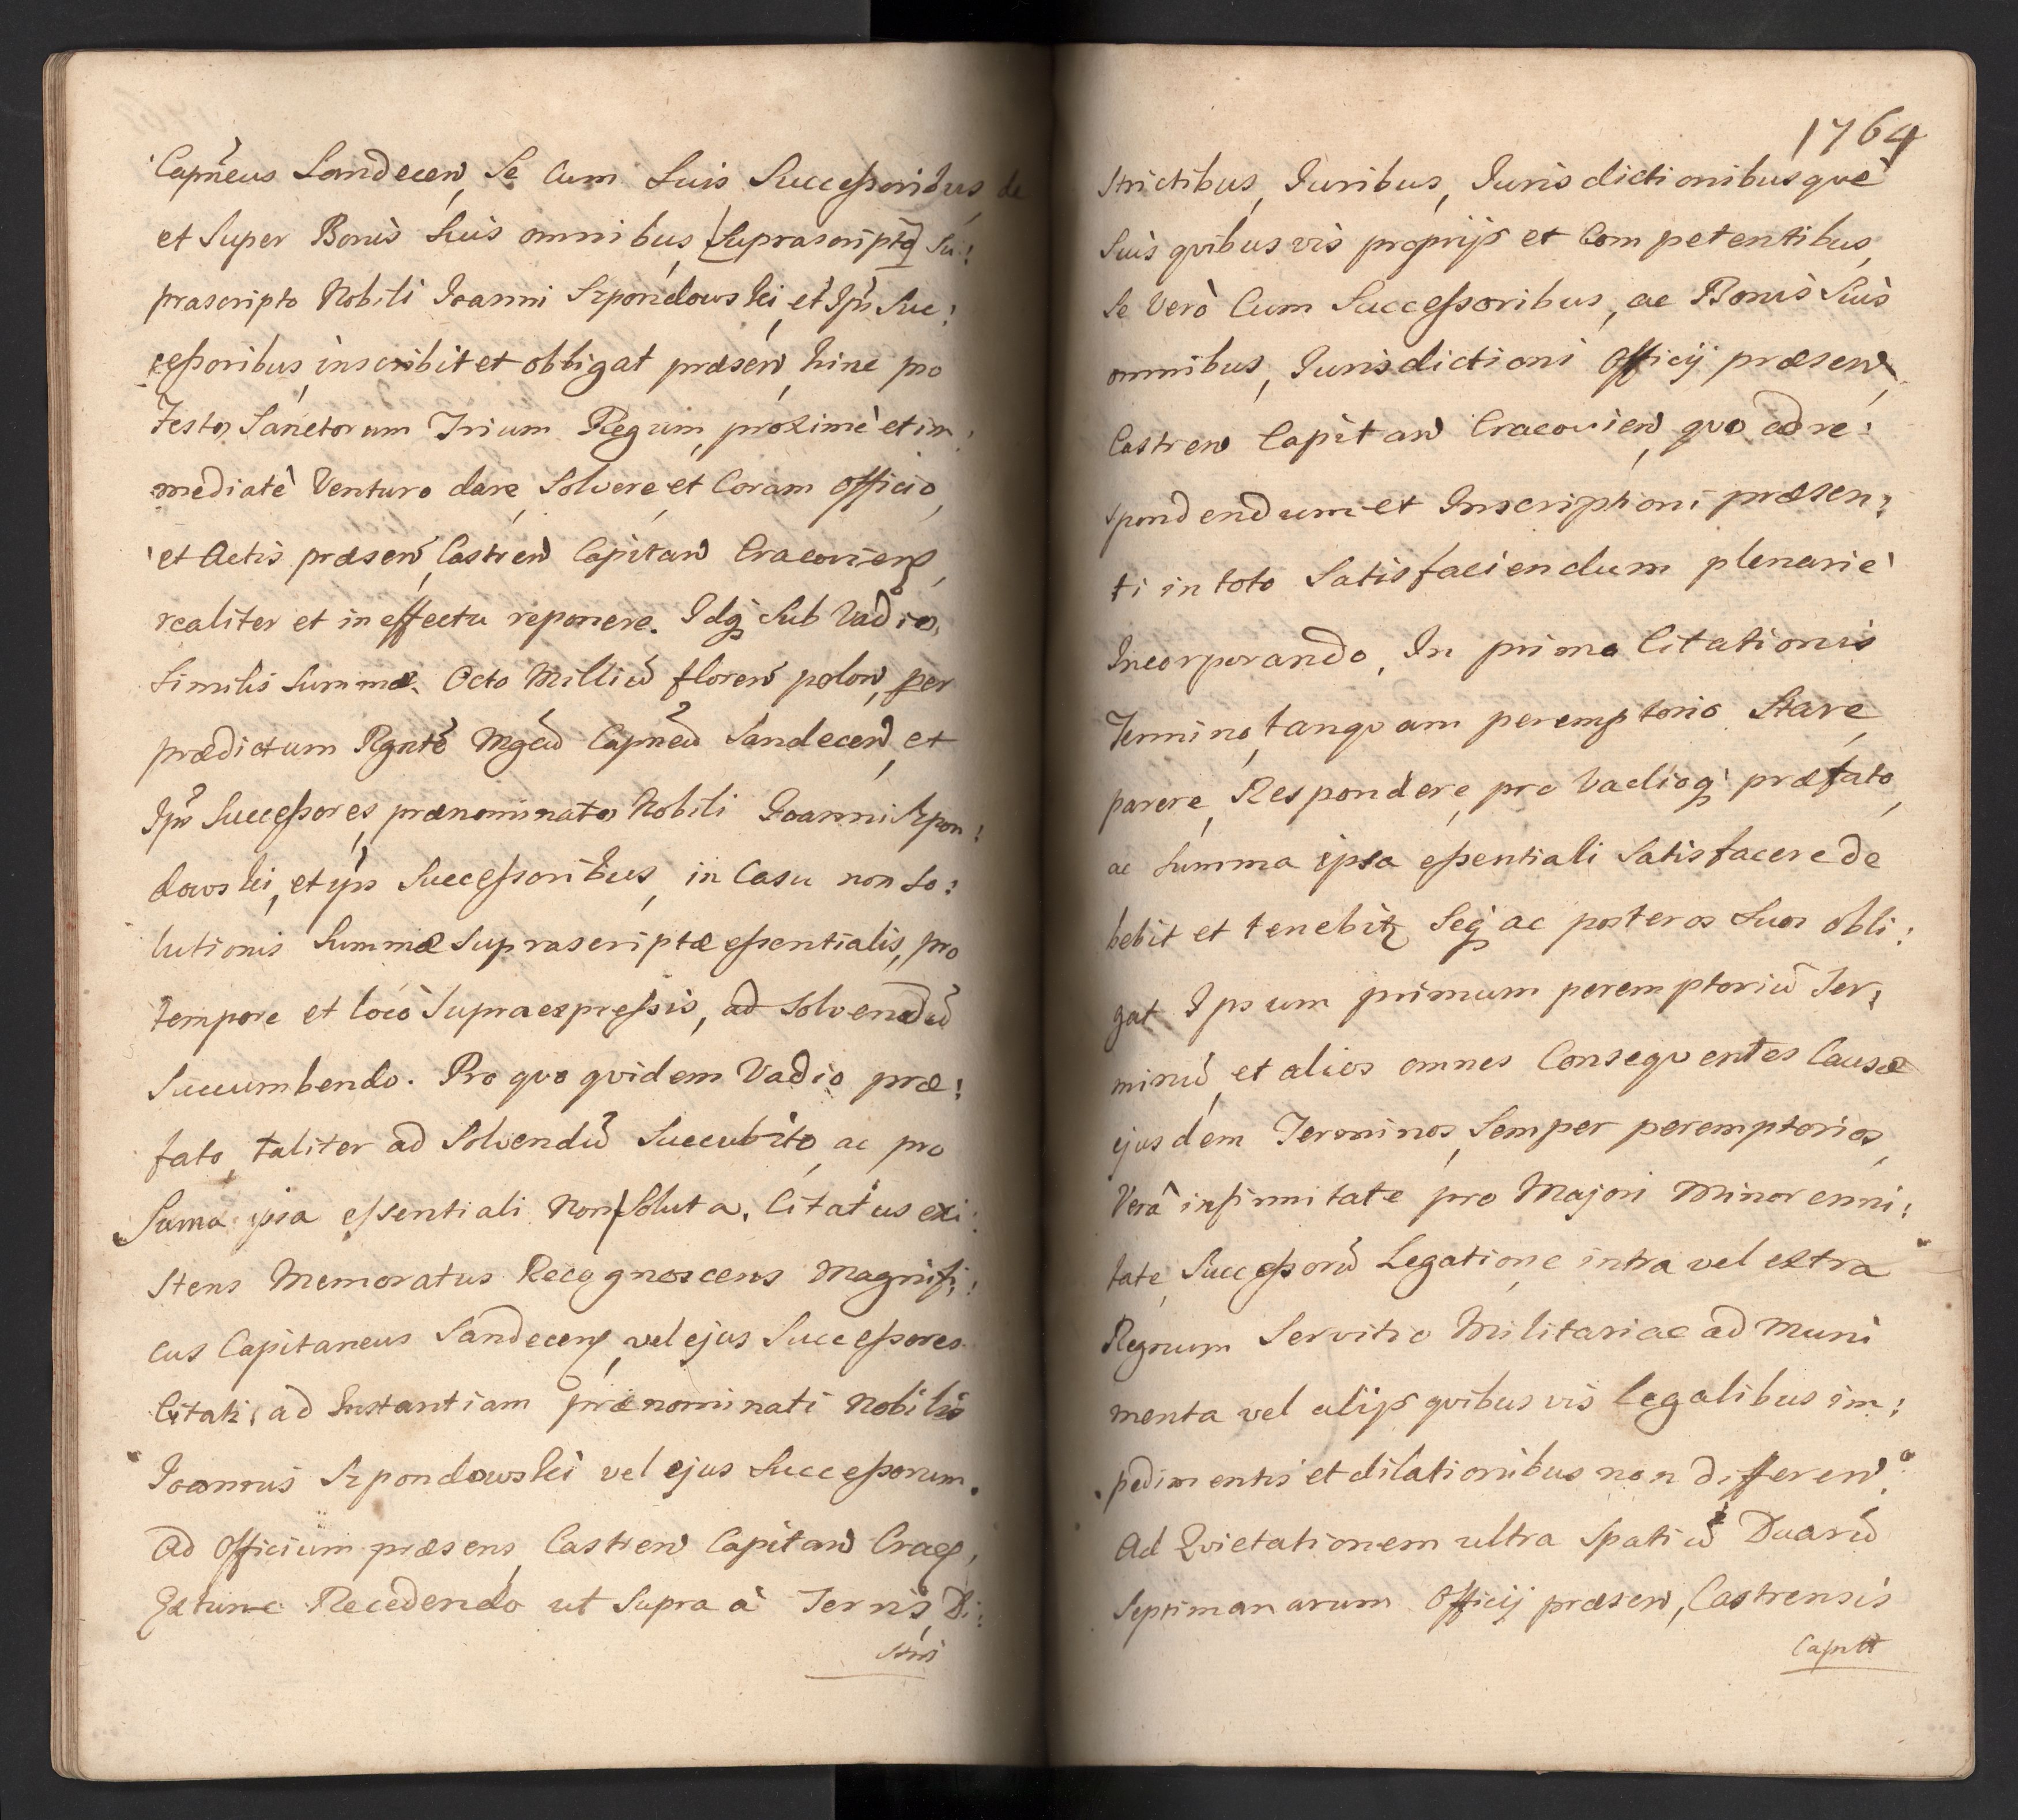 Capneus Sandecen, Se Cum Suis Successoribus de
et Super Bonis Suis omnibus, [Suprascripto] Su:
prascripto Nobili Joanni Szpondowski, et Ips Suc:
cessoribus, inscribit et obligat præsen, hinc pro
Festo Sanctorum Trium Regum, proximè et im:
mediatè Venturo dare, Solvere et Coram officio,
et Actis præsen, Castren Capitan Cracoviens,
realiter et in effectu reponere. Idq Sub Vadio,
Similis Summæ. Octo Milliu floren polon, per
prædictum Rgnte Mgcu Capneu Sandecen, et
Ips Successores, prænominato Nobili Joanni Szpon:
dowski, et ips Successoribus, in Casu non So:
lutionis Summæ Suprascriptæ essentialis, pro
tempore et locò Supraexpressis, ad Solvendu
Succumbendo. Pro quo quidem Vadio præ:
fato, taliter ad Solvendu Succubito, ac pro
Suma ipsa essentiali Non Soluta, Citatus exi:
stens Memoratus Recognoscens Magnifi:
cus Capitaneus Sandecens, vel ejus Successores
Citati, ad Instantiam prænominati Nobilis
Joannis Szpondowski vel ejus Successorum.
Ad Officium præsens, Castren Capitan Crac,
Extunc Recedendo ut Supra à Terris, Di:
stri
1764
strictibus, Juribus, Jurisdictionibusquè
Suis quibusvis proprijs et Competentibus,
Se Verò Cum Successoribus, ac Bonis Suis
omnibus, Jurisdictioni Officij præsen,
Castren Capitan Cracovien, quo ad re:
spondendum et Inscriptioni præsen:
ti in toto Satisfaciendum plenariè
Incorporando, In primo Citationis
Termino, tanquam peremptorio Stare,
parere, Respondere, pro Vadioq præfato,
ac Summa ipsa essentiali Satisfacere de
bebit et tenebit Seq ac posteros Suos obli:
gat Ipsum primum peremptoriu Ter:
minu, et alios omnes Consequentes Causæ
ejusdem Terminos, Semper peremptorios,
Verâ infirmitate pro Majori Minorenni:
tate, Successoru Legatione intra vel extra
Regnum Servitio Militari ac ad Muni
menta vel alijs quibusvis legalibus im:
pedimentis et dilationibus non differen.
Ad Quietationem ultra Spatiu Duaru
Septimanarum Officij præsen, Castrensis
Capitt